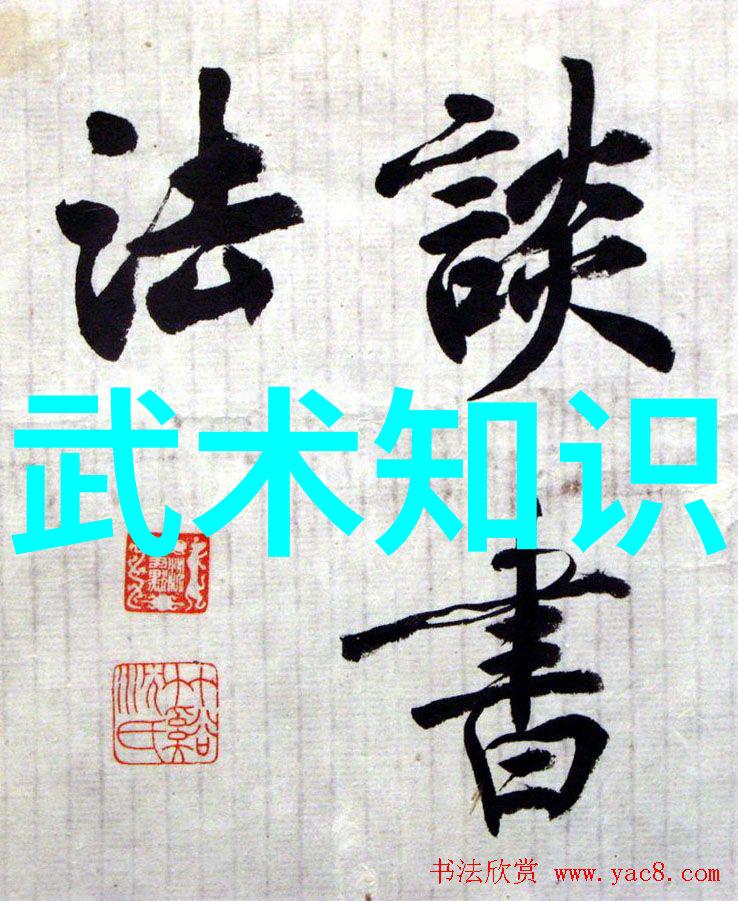 談書
法
武术知识
竹谿
沈氏
书法欣赏 www.yac8.com